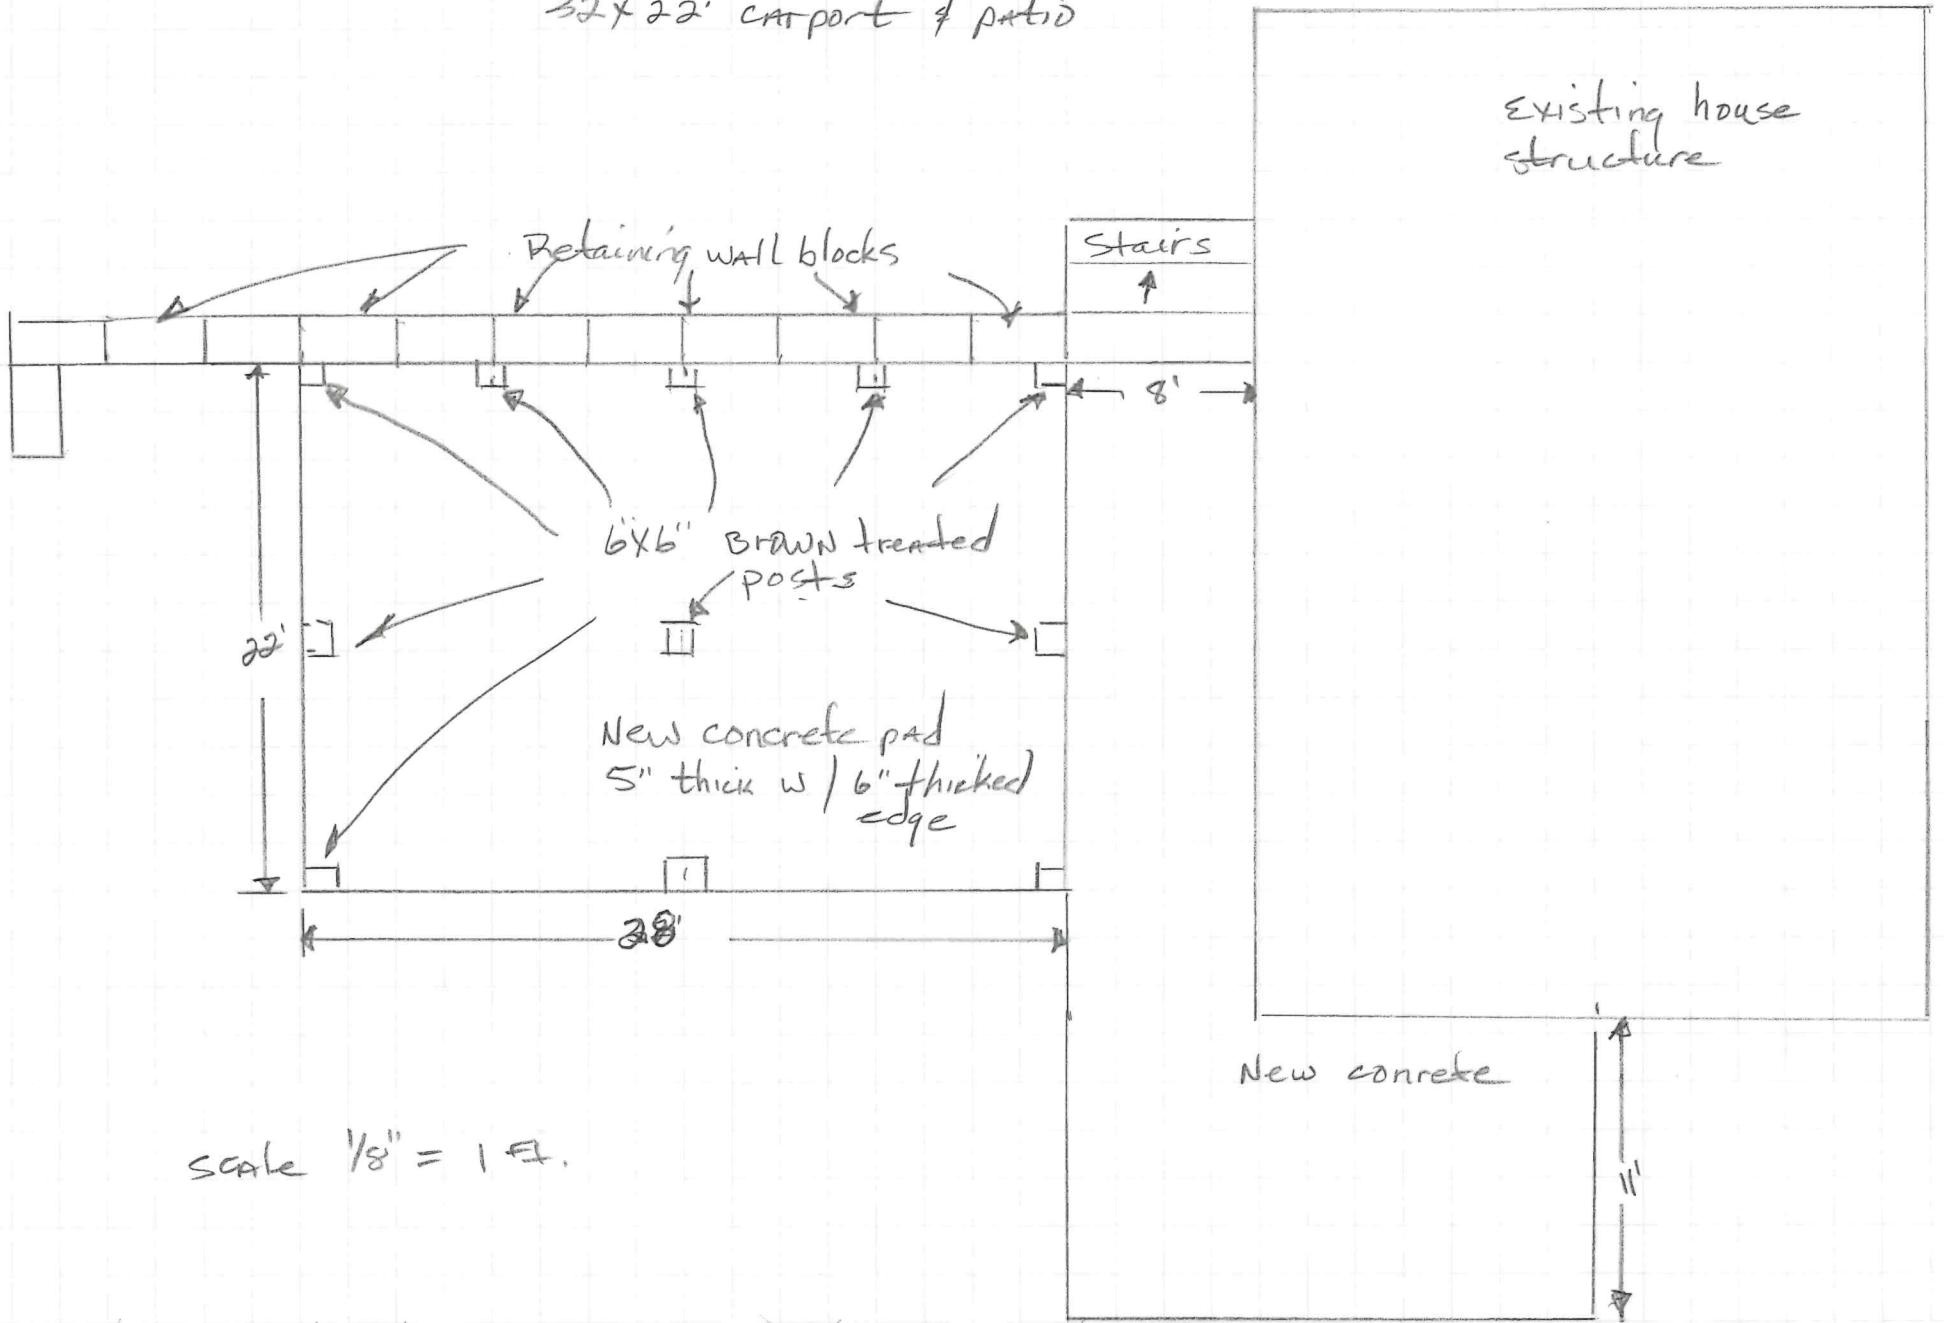 32x22' carport & patio
Existing house
structure
Retaining wall blocks
Stairs
8'
6"x6" Brown treated
posts
22'
New concrete pad
5" thick w/ 6" thicked
edge
New conrete
scale 1/8" = 1 ft.
11'